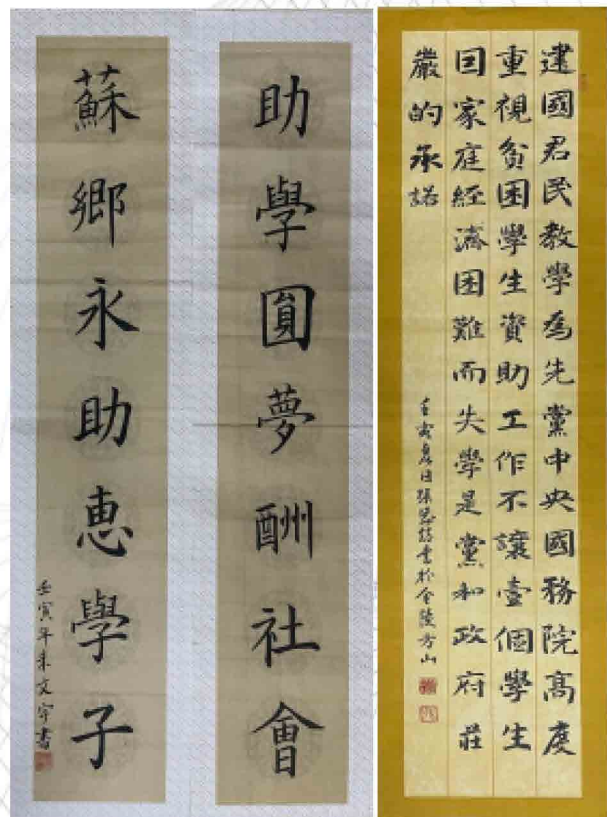 助學圓夢酬社會
蘇鄉永助惠學子
壬寅年朱文宇書
建國君民教學為先黨中央國務院高度
重視貧困學生資助工作不讓壹個學生
因家庭經濟困難而失學是黨和政府莊
嚴的承諾
書於金陵方山